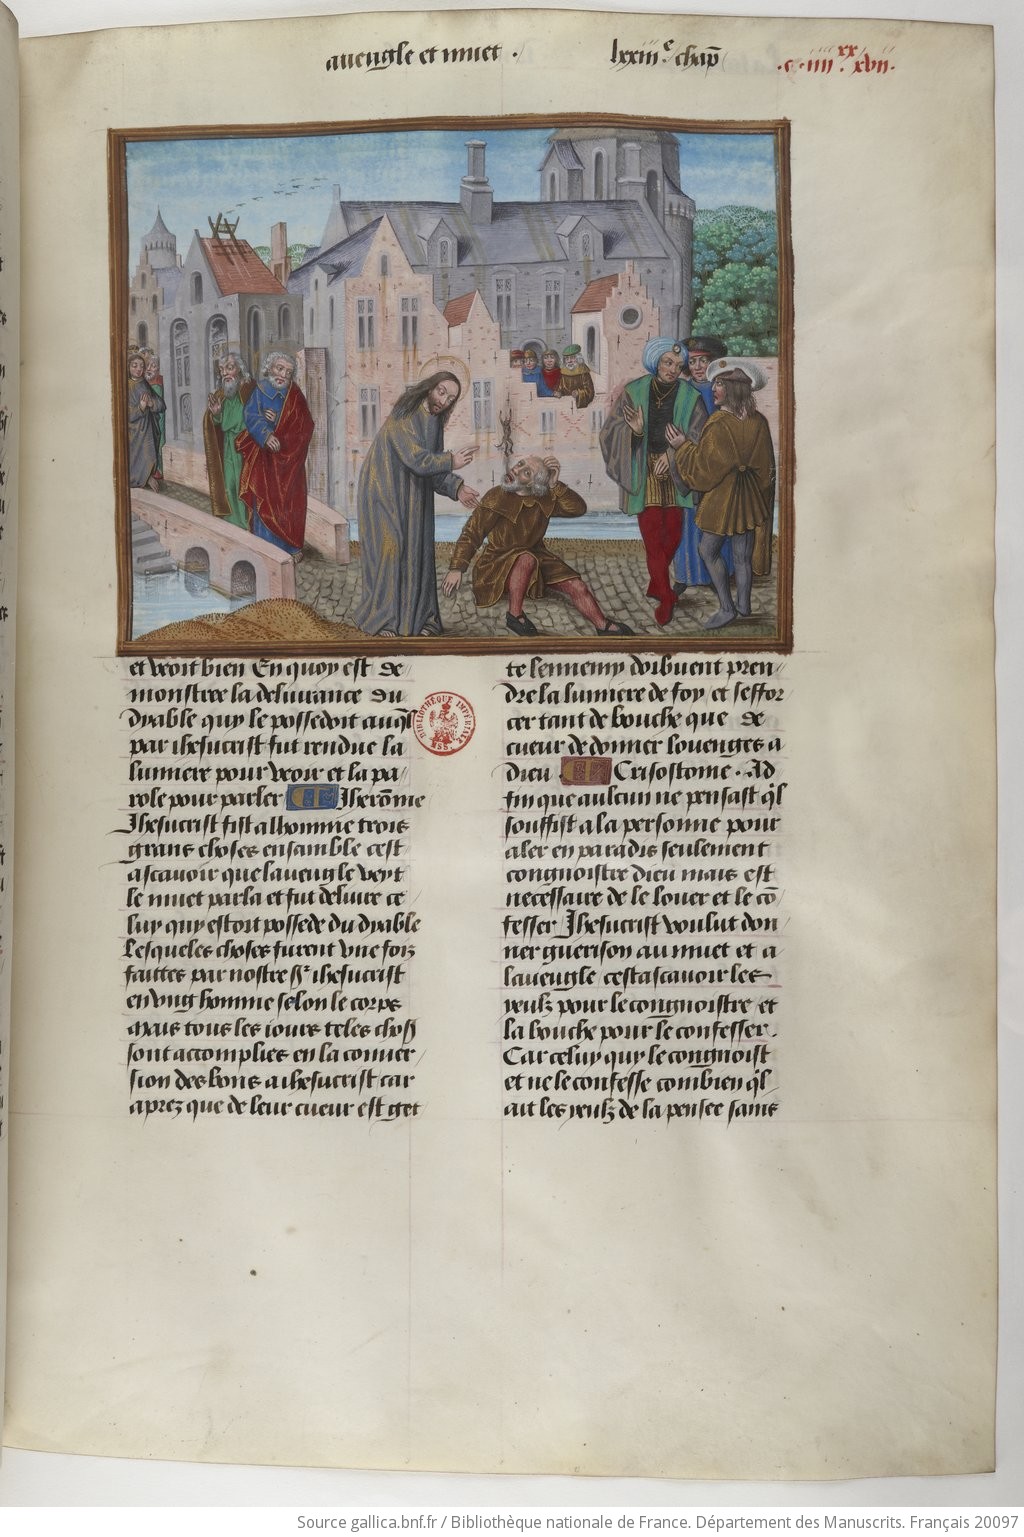 aueugle et muet .
lxxiii.e chap̄
.c. iiii xx. xvii.
et veoit bien En quoy est de
monstree la deliurance du
dyable quy le possedoit auql̄
par ihesucrist fut rendue la
lumiere pour veoir et la pa
role pour parler Iherōme
Ihesucrist fist a lhomme trois
grans choses ensamble cest
ascauoir que laueugle veyt
le muet parla et fut deliure ce
luy quy estoit possede du dyable
Lesqueles choses furent vne foiz
faittes par nostre sr ihesucrist
en vng homme selon le corps
Mais tous les iours teles chos
sont accomplies en la conuer
sion des bons a ihesucrist car
aprez que de leur cueur est get
te lennemy doibuent pren
dre la lumiere de foy et seffor
cer tant de bouche que de
cueur de donner louenges a
dieu . Crisostome . Ad
fin que aulcun ne pensast ql̄
souffist a la personne pour
aler en paradis seulement
congnoistre dieu mais est
necessaire de le louer et le cō
fesser Ihesucrist voulut don
ner guerison au muet et a
laueugle cestascauoir les
yeulz pour le congnoistre et
la bouche pour le confesser .
Car celuy quy le congnoist
et ne le confesse combien ql̄
ait les yeulz de la pensee sains
BIBLIOTHÈQUE IMPÉRIALE
MSS.
Source gallica.bnf.fr / Bibliothèque nationale de France. Département des Manuscrits. Français 20097